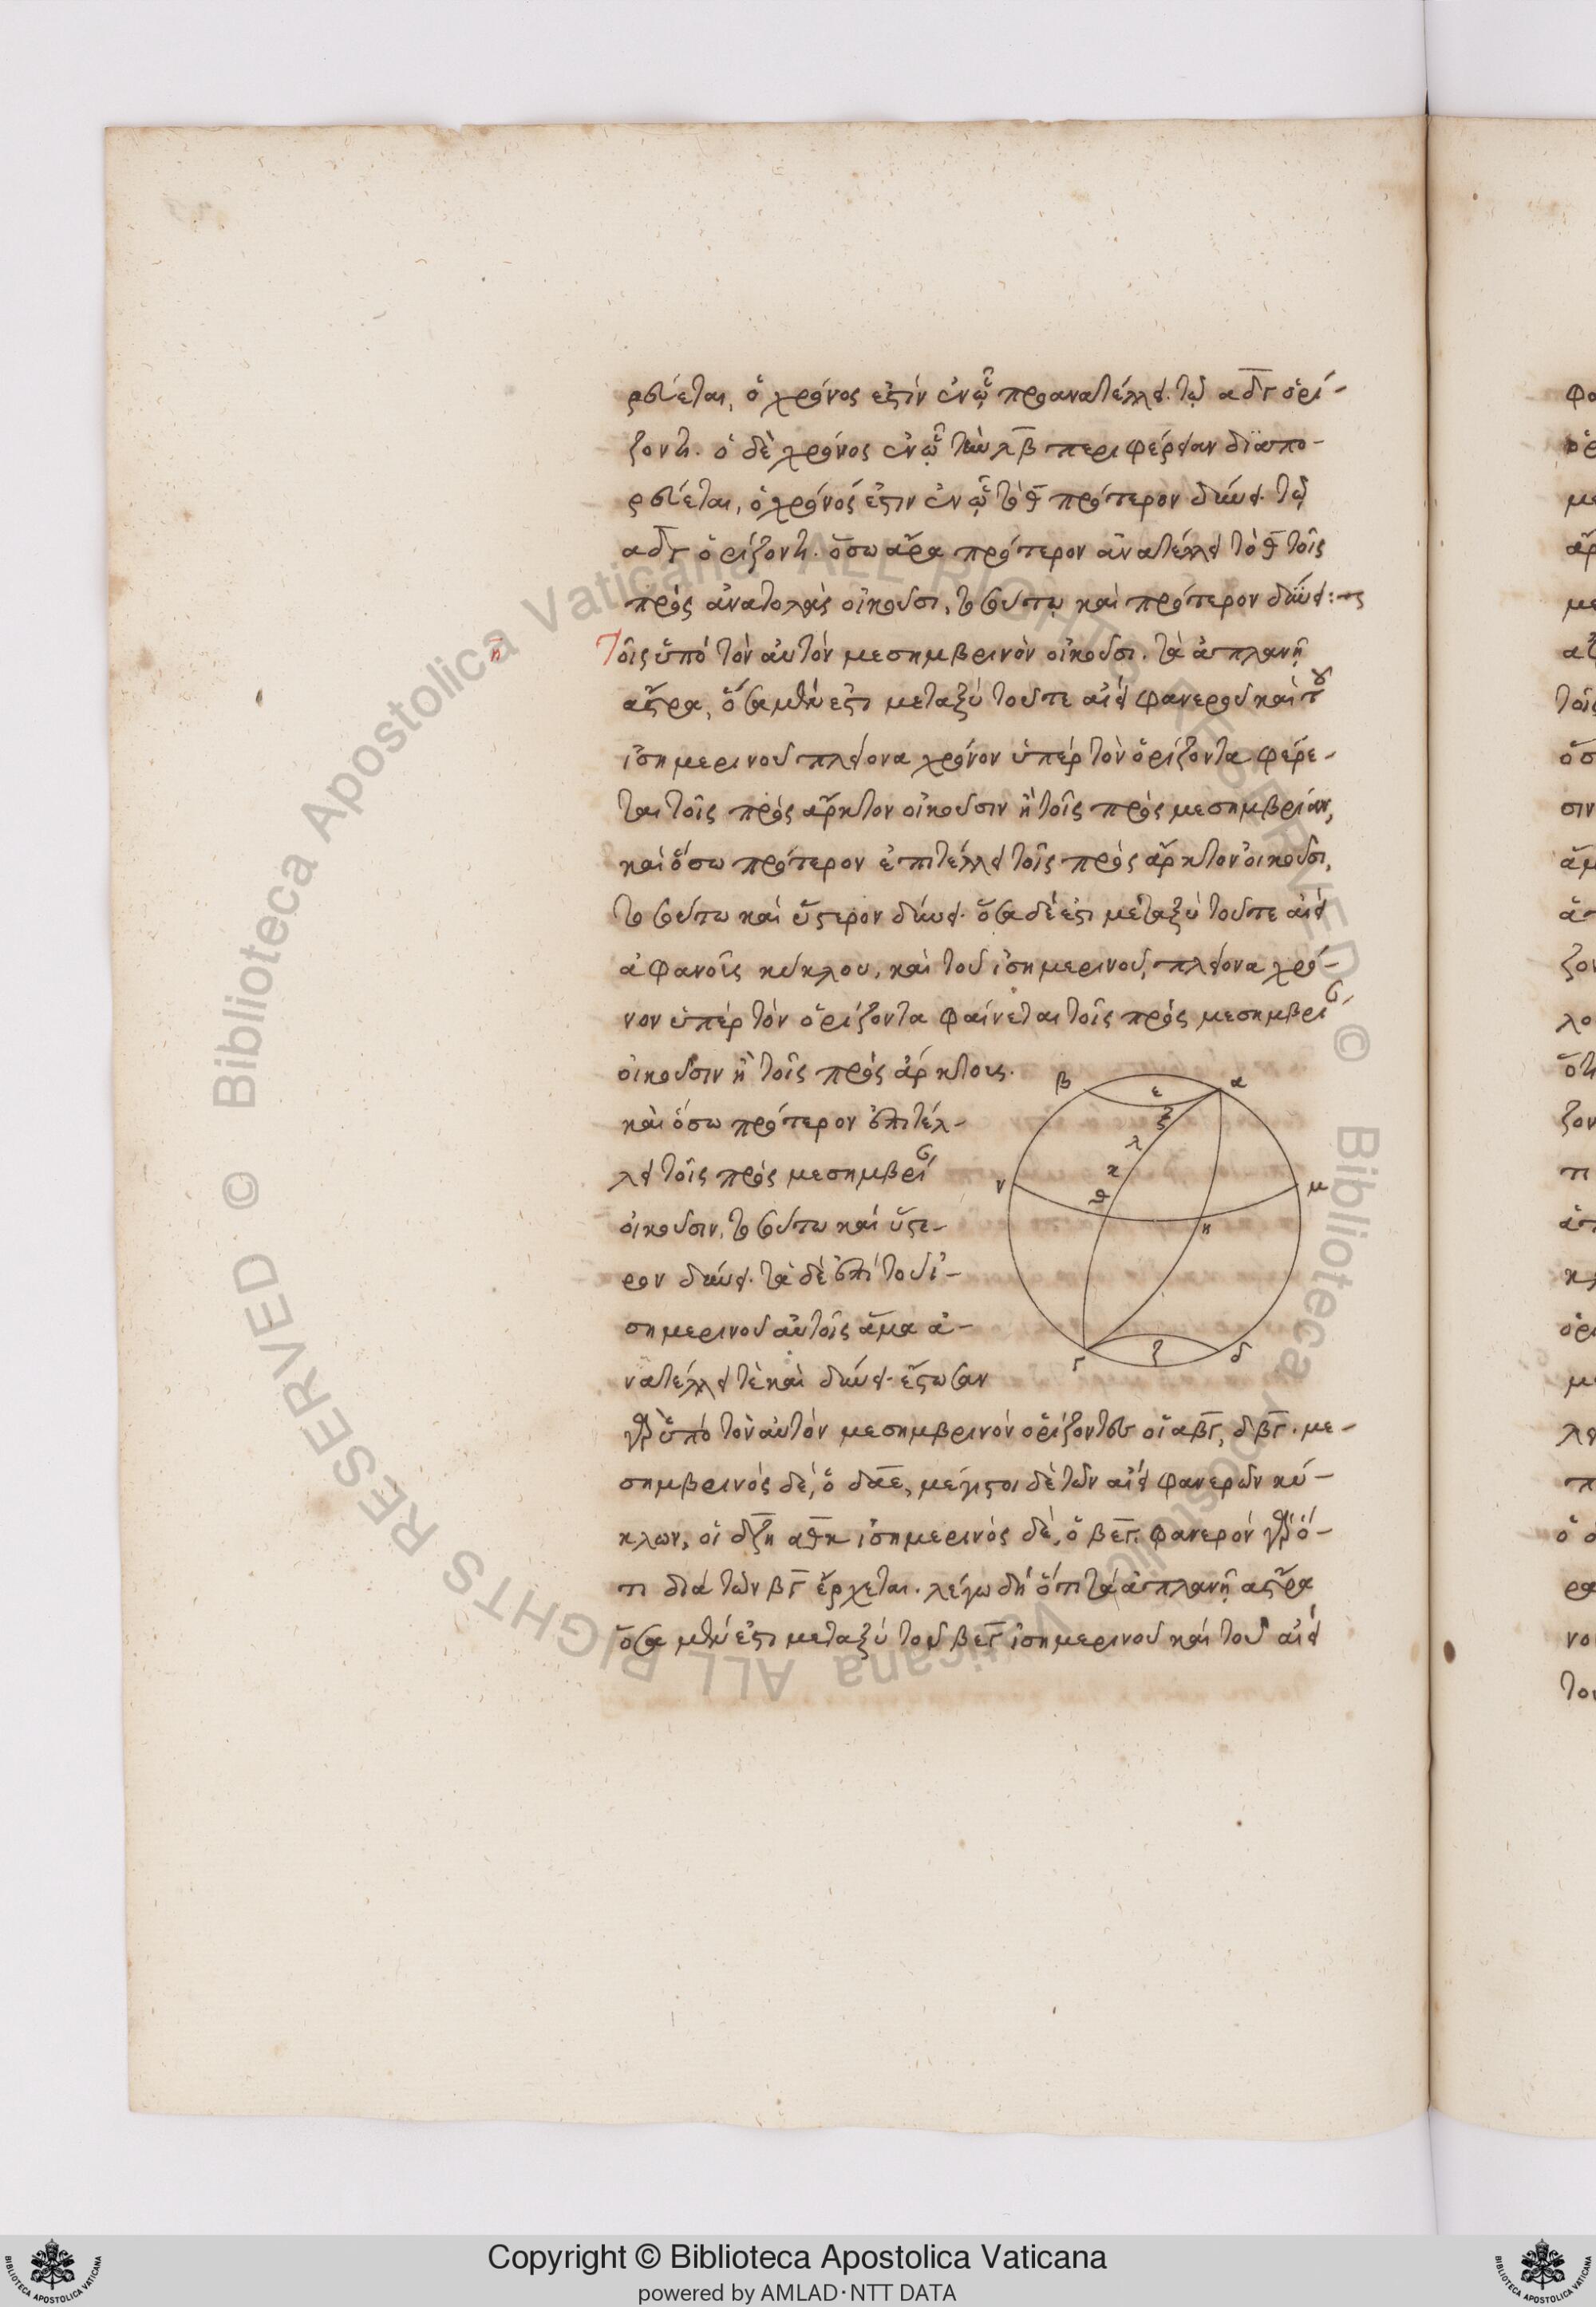 ρεύεται, ὁ χρόνος ἐστὶν ἐν ᾧ προανατέλλει τῷ αδγ ὁρί-
ζοντι. ὁ δὲ χρόνος ἐν ᾧ τὴν λβ περιφέρειαν διαπο-
ρεύεται, ὁ χρόνός ἐστιν ἐν ᾧ τὸ θ πρότερον δύνει τῷ
αδγ ὁρίζοντι. ὅσω ἄρα πρότερον ἀνατέλλει τὸ θ τοῖς
πρὸς ἀνατολὰς οἰκοῦσι, τοσούτῳ καὶ πρότερον δύνει:
η Τοῖς ὑπὸ τὸν αὐτὸν μεσημβρινὸν οἰκοῦσι. τὰ ἀπλανῆ
ἄστρα, ὅσα μέν ἐστι μεταξὺ τοῦ τε αἰεὶ φανεροῦ καὶ τοῦ
ἰσημερινοῦ πλείονα χρόνον ὑπὲρ τὸν ὁρίζοντα φέρε-
ται τοῖς πρὸς ἄρκτον οἰκοῦσιν ἢ τοῖς πρὸς μεσημβρίαν,
καὶ ὅσω πρότερον ἐπιτέλλει τοῖς πρὸς ἄρκτον οἰκοῦσι,
τοσούτω καὶ ὕστερον δύνει. ὅσα δέ ἐστι μεταξὺ τοῦ τε αἰεὶ
ἀφανοῖς κύκλου, καὶ τοῦ ἰσημερινοῦ, πλείονα χρό-
νον ὑπὲρ τὸν ὁρίζοντα φαίνεται τοῖς πρὸς μεσημβρί
οἰκοῦσιν ἢ τοῖς πρὸς ἄρκτους.
καὶ ὅσω πρότερον ἐπιτέλ-
λει τοῖς πρὸς μεσημβρί
οἰκοῦσιν, τοσούτω καὶ ὕστε-
ρον δύνει. τὰ δὲ ἐπὶ τοῦ ἰ-
σημερινοῦ αὐτοῖς ἅμα ἀ-
νατέλλει τὲ καὶ δύνει. ἔστωσαν
γὰρ ὑπὸ τὸν αὐτὸν μεσημβρινὸν ὁρίζοντες οἱ αβγ, δβγ. με-
σημβρινὸς δὲ, ὁ δαε, μέγιστοι δὲ τῶν αἰεὶ φανερῶν κύ-
κλων, οἱ δζη αθκ ἰσημερινὸς δὲ, ὁ βεγ. φανερὸν γὰρ ὅ-
τι διὰ τῶν βγ ἔρχεται. λέγω δὴ ὅτι τὰ ἀπλανῆ ἄστρα
ὅσα μέν ἐστι μεταξὺ τοῦ βεγ ἰσημερινοῦ καὶ τοῦ αἰεὶ
β ε α
ξ
λ
κ
ν θ μ
η
γ ζ δ
Copyright © Biblioteca Apostolica Vaticana
powered by AMLAD·NTT DATA